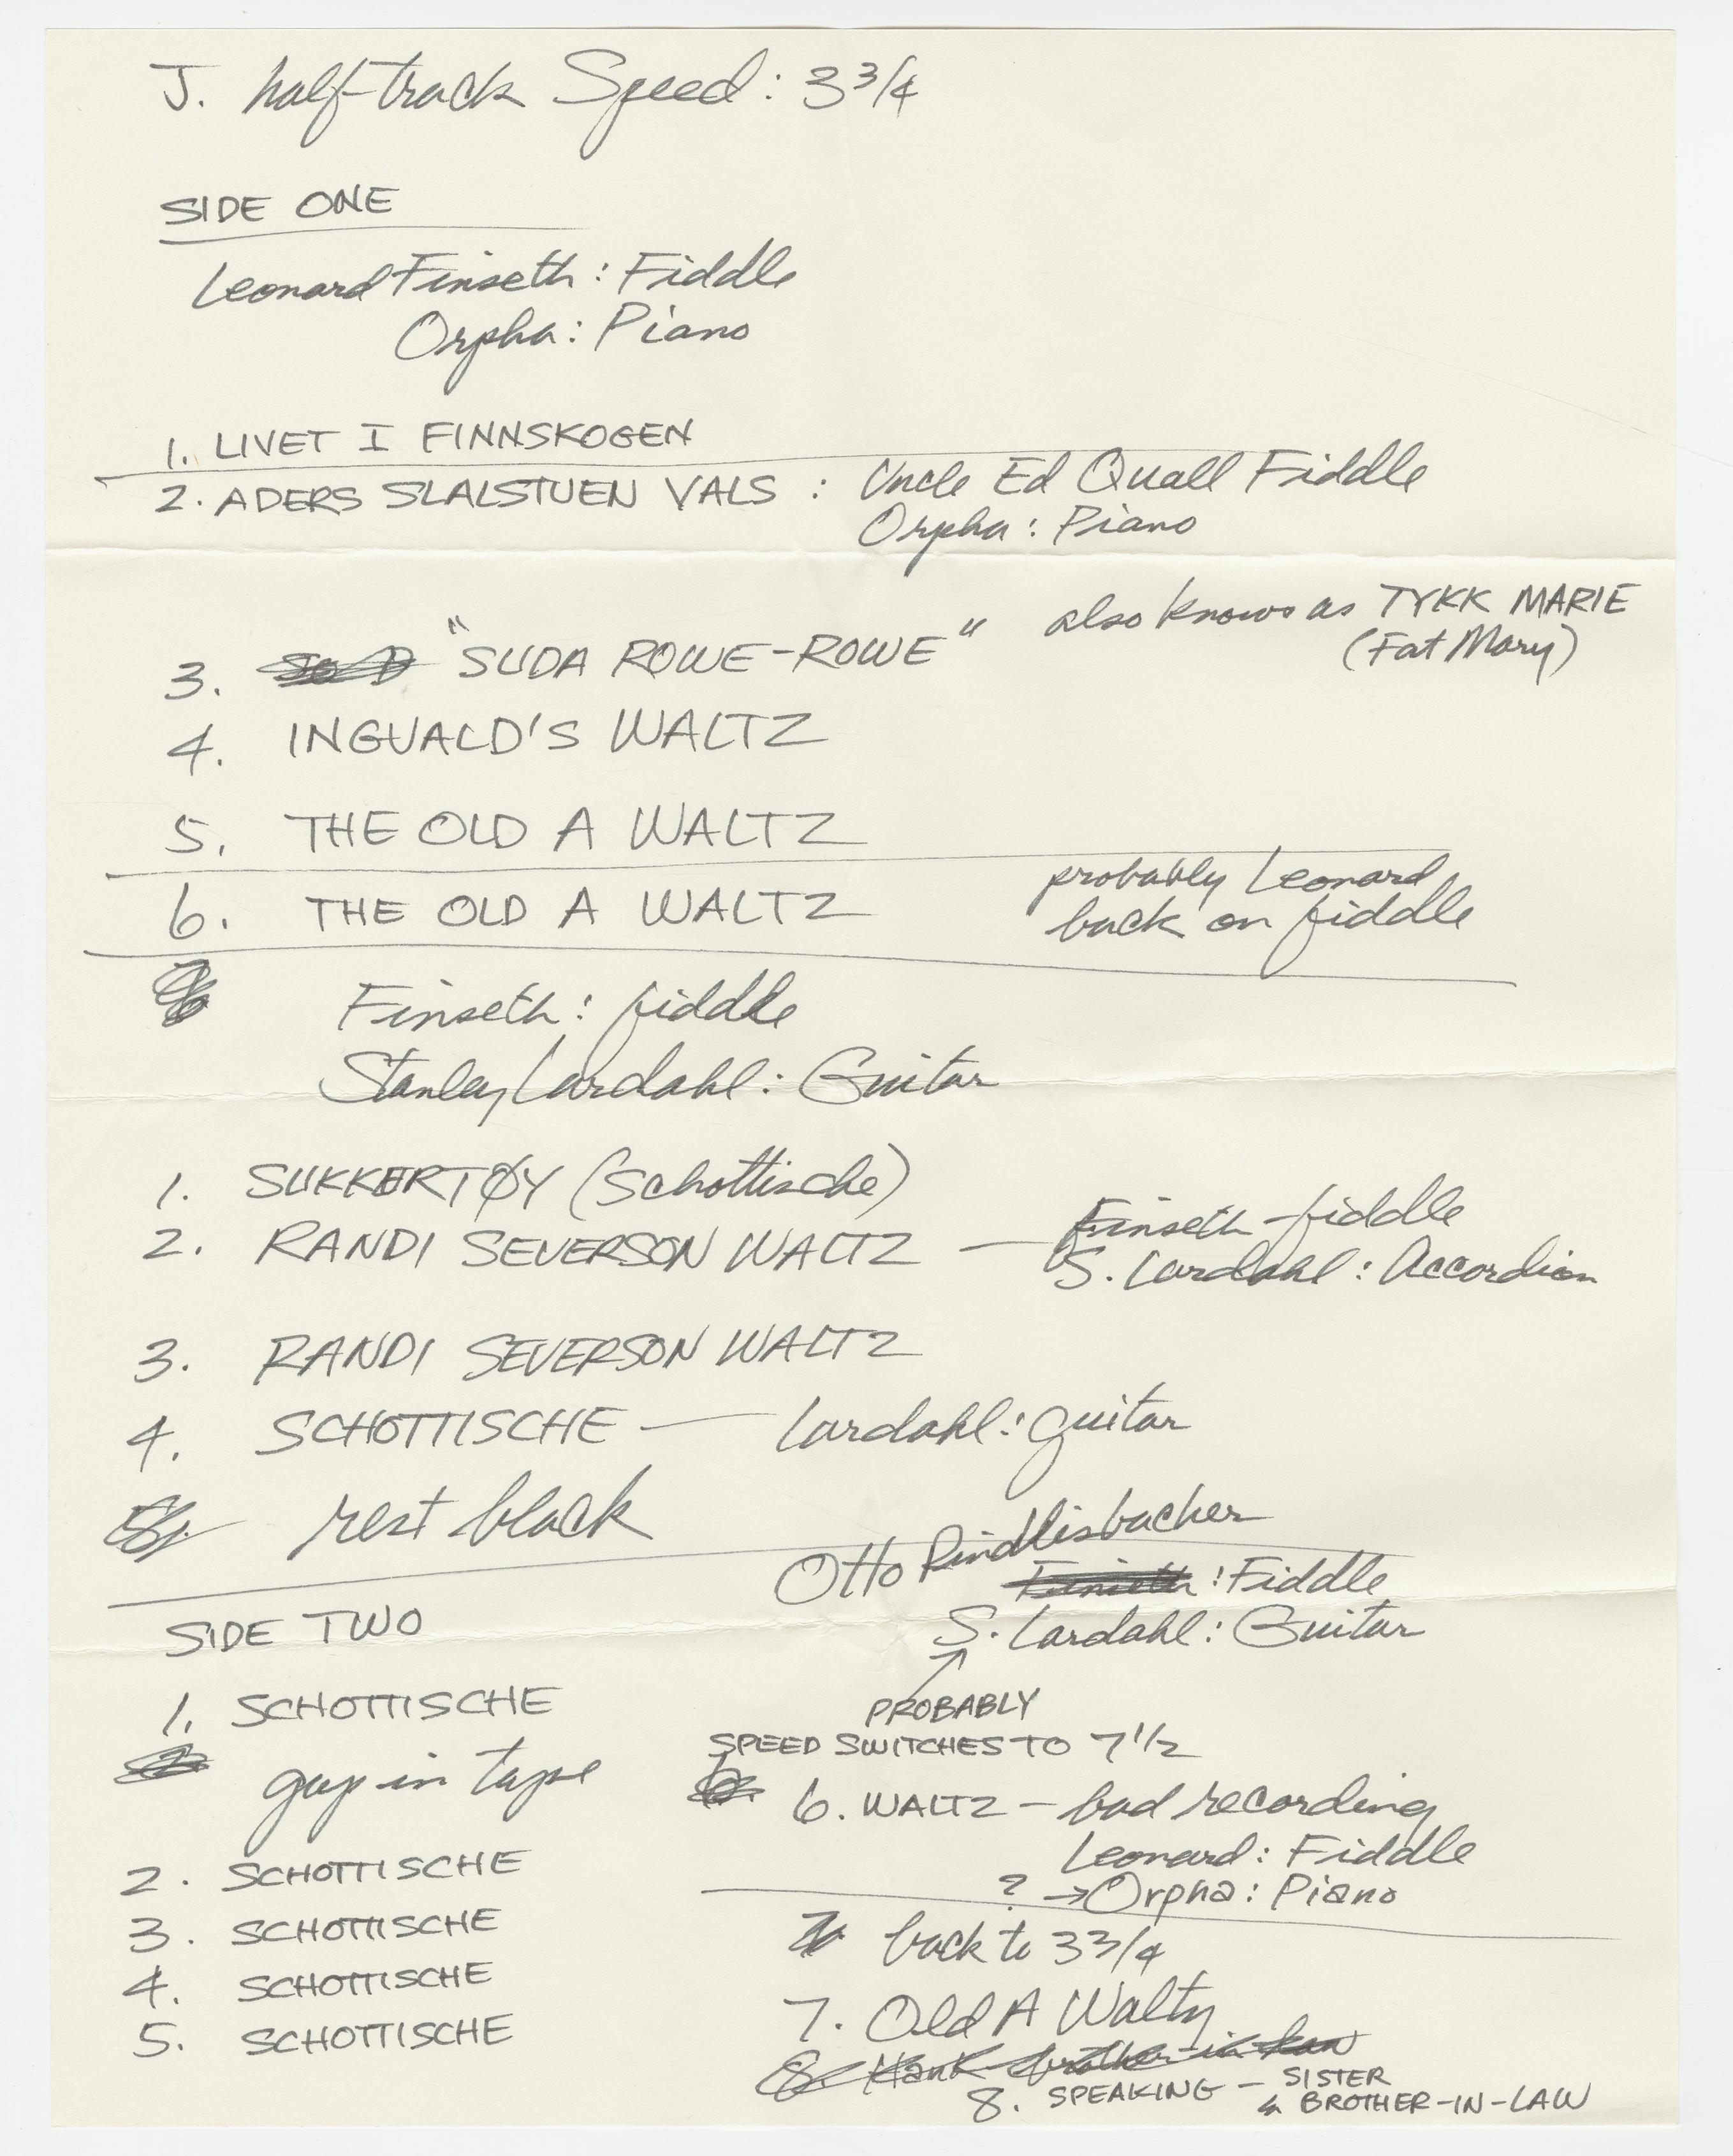 J. half-track Speed: 3 3/4
SIDE ONE
Leonard Finseth: Fiddle
Orpha: Piano
1. LIVET I FINNSKOGEN
2. ADERS SLALSTUEN VALS : Uncle Ed Quall Fiddle
Orpha: Piano
3. "SUDA ROWE-ROWE" also known as TYKK MARIE
(Fat Mary)
4. INGUALD'S WALTZ
5. THE OLD A WALTZ
6. THE OLD A WALTZ probably Leonard
back on fiddle
Finseth: fiddle
Stanley Lardahl: Guitar
1. SUKKERTØY (Schottische)
2. RANDI SEVERSON WALTZ — Finseth - fiddle
S. Lardahl: Accordion
3. RANDI SEVERSON WALTZ
4. SCHOTTISCHE — Lardahl: guitar
rest black
SIDE TWO
1. SCHOTTISCHE
gap in tape
2. SCHOTTISCHE
3. SCHOTTISCHE
4. SCHOTTISCHE
5. SCHOTTISCHE
Otto Rindlisbacher
Finseth: Fiddle
S. Lardahl: Guitar
PROBABLY
SPEED SWITCHES TO 7 1/2
6. WALTZ - bad recording
Leonard: Fiddle
? → Orpha: Piano
back to 3 3/4
7. Old A Waltz
8. Hank brother-in-law
8. SPEAKING - SISTER
& BROTHER-IN-LAW